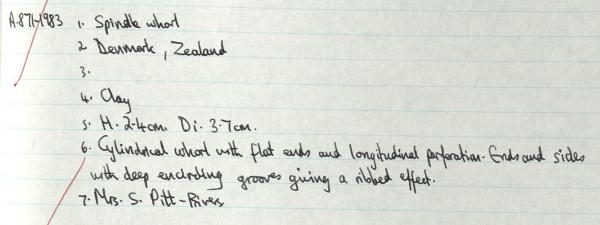 A.871-1983 1. Spindle whorl
2 Denmark, Zealand
3.
4. Clay
5. H. 2.4cm. Di. 3.7cm.
6. Cylindrical whorl with flat ends and longitudinal perforation. Ends and sides
with deep encircling grooves giving a ribbed effect.
7. Mrs. S. Pitt-Rivers